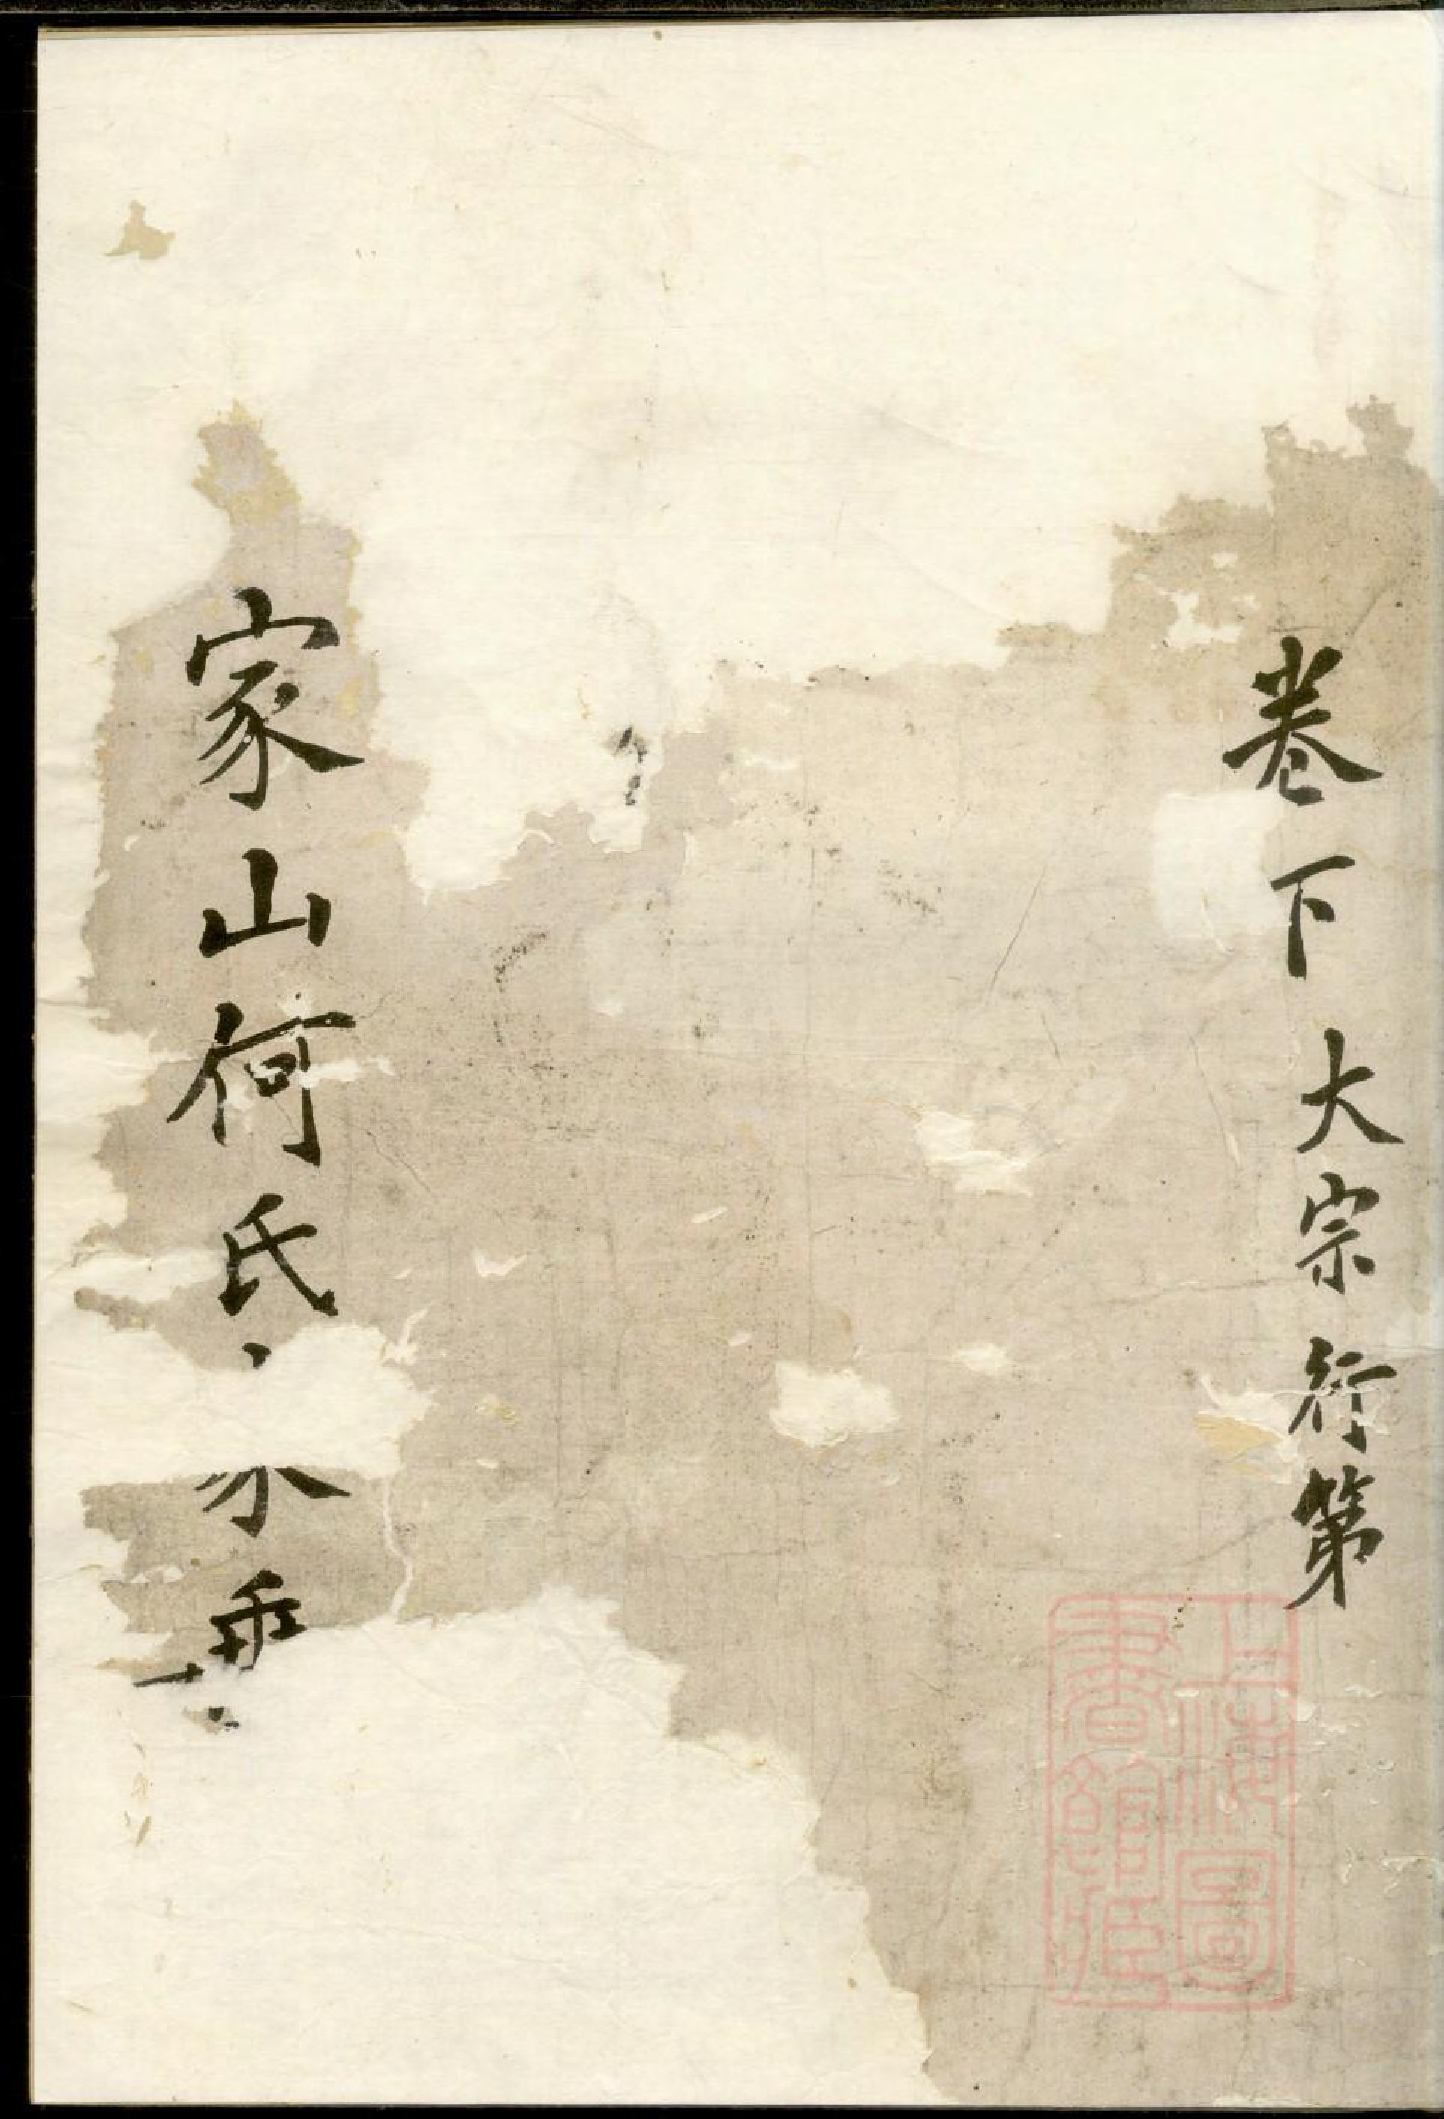 卷下大宗行第
上海圖
書館藏
家山何氏家乘